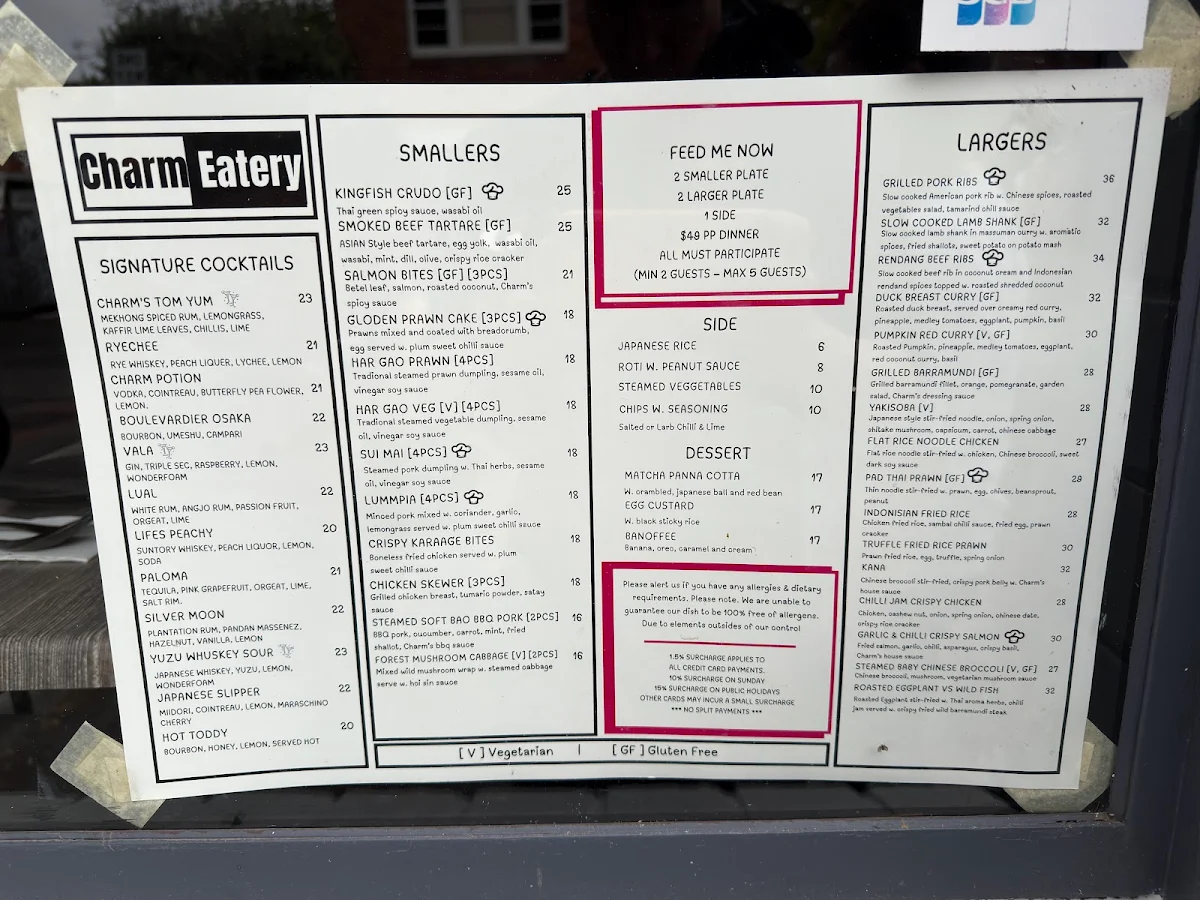 Charm Eatery
SIGNATURE COCKTAILS
CHARM'S TOM YUM 23
MEKHONG SPICED RUM, LEMONGRASS,
KAFFIR LIME LEAVES, CHILLIS, LIME
RYECHEE 21
RYE WHISKEY, PEACH LIQUER, LYCHEE, LEMON
CHARM POTION
VODKA, COINTREAU, BUTTERFLY PEA FLOWER, 21
LEMON.
BOULEVARDIER OSAKA 22
BOURBON, UMESHU, CAMPARI
VALA 23
GIN, TRIPLE SEC, RASPBERRY, LEMON,
WONDERFOAM
LUAL 22
WHITE RUM, ANGJO RUM, PASSION FRUIT,
ORGEAT, LIME
LIFES PEACHY 20
SUNTORY WHISKEY, PEACH LIQUOR, LEMON,
SODA
PALOMA 21
TEQUILA, PINK GRAPEFRUIT, ORGEAT, LIME,
SALT RIM.
SILVER MOON 22
PLANTATION RUM, PANDAN MASSENEZ,
HAZELNUT, VANILLA, LEMON
YUZU WHUSKEY SOUR 23
JAPANESE WHISKEY, YUZU, LEMON,
WONDERFOAM
JAPANESE SLIPPER 22
MIDORI, COINTREAU, LEMON, MARASCHINO
CHERRY
HOT TODDY 20
BOURBON, HONEY, LEMON, SERVED HOT
SMALLERS
KINGFISH CRUDO [GF] 25
Thai green spicy sauce, wasabi oil
SMOKED BEEF TARTARE [GF] 25
ASIAN Style beef tartare, egg yolk, wasabi oil,
wasabi, mint, dill, olive, crispy rice cracker
SALMON BITES [GF] [3PCS] 21
Betel leaf, salmon, roasted coconut, Charm's
spicy sauce
GLODEN PRAWN CAKE [3PCS] 18
Prawns mixed and coated with breadcrumb,
egg served w. plum sweet chilli sauce
HAR GAO PRAWN [4PCS] 18
Tradional steamed prawn dumpling, sesame oil,
vinegar soy sauce
HAR GAO VEG [V] [4PCS] 18
Tradional steamed vegetable dumpling, sesame
oil, vinegar soy sauce
SUI MAI [4PCS] 18
Steamed pork dumpling w. Thai herbs, sesame
oil, vinegar soy sauce
LUMMPIA [4PCS] 18
Minced pork mixed w. coriander, garlic,
lemongrass served w. plum sweet chilli sauce
CRISPY KARAAGE BITES 18
Boneless fried chicken served w. plum
sweet chilli sauce
CHICKEN SKEWER [3PCS] 18
Grilled chicken breast, tumaric powder, satay
sauce
STEAMED SOFT BAO BBQ PORK [2PCS] 16
BBQ pork, cucumber, carrot, mint, fried
shallot, Charm's bbq sauce
FOREST MUSHROOM CABBAGE [V] [2PCS] 16
Mixed wild mushroom wrap w. steamed cabbage
serve w. hoi sin sauce
FEED ME NOW
2 SMALLER PLATE
2 LARGER PLATE
1 SIDE
$49 PP DINNER
ALL MUST PARTICIPATE
(MIN 2 GUESTS – MAX 5 GUESTS)
SIDE
JAPANESE RICE 6
ROTI W. PEANUT SAUCE 8
STEAMED VEGGETABLES 10
CHIPS W. SEASONING 10
Salted or Larb Chilli & Lime
DESSERT
MATCHA PANNA COTTA 17
W. crambled, japanese ball and red bean
EGG CUSTARD 17
W. black sticky rice
BANOFFEE 17
Banana, oreo, caramel and cream
Please alert us if you have any allergies & dietary
requirements. Please note. We are unable to
guarantee our dish to be 100% free of allergens.
Due to elements outsides of our control
1.5% SURCHARGE APPLIES TO
ALL CREDIT CARD PAYMENTS.
10% SURCHARGE ON SUNDAY
15% SURCHARGE ON PUBLIC HOLIDAYS
OTHER CARDS MAY INCUR A SMALL SURCHARGE
*** NO SPLIT PAYMENTS ***
LARGERS
GRILLED PORK RIBS 36
Slow cooked American pork rib w. Chinese spices, roasted
vegetables salad, tamarind chill sauce
SLOW COOKED LAMB SHANK [GF] 32
Slow cooked lamb shank in massuman curry w. aromatic
spices, fried shallots, sweet potato on potato mash
RENDANG BEEF RIBS 34
Slow cooked beef rib in coconut cream and Indonesian
rendand spices topped w. roasted shredded coconut
DUCK BREAST CURRY [GF] 32
Roasted duck breast, served over creamy red curry,
pineapple, medley tomatoes, eggplant, pumpkin, basil
PUMPKIN RED CURRY [V, GF] 30
Roasted Pumpkin, pineapple, medley tomatoes, eggplant,
red coconut curry, basil
GRILLED BARRAMUNDI [GF] 28
Grilled barramundi fillet, orange, pomegranate, garden
salad, Charm's dressing sauce
YAKISOBA [V] 28
Japanese style stir-fried noodle, onion, spring onion,
shitake mushroom, capsicum, carrot, chinese cabbage
FLAT RICE NOODLE CHICKEN 27
Flat rice noodle stir-fried w. chicken, Chinese broccoli, sweet
dark soy sauce
PAD THAI PRAWN [GF] 29
Thin noodle stir-fried w. prawn, egg, chives, beansprout,
peanut
INDONISIAN FRIED RICE 28
Chicken fried rice, sambal chilli sauce, fried egg, prawn
cracker
TRUFFLE FRIED RICE PRAWN 30
Prawn fried rice, egg, truffle, spring onion
KANA 32
Chinese broccoli stir-fried, crispy pork belly w. Charm's
house sauce
CHILLI JAM CRISPY CHICKEN 28
Chicken, cashew nut, onion, spring onion, chinese date,
crispy rice cracker
GARLIC & CHILLI CRISPY SALMON 30
Fried salmon, garlic, chilli, asparagus, crispy basil,
Charm's house sauce
STEAMED BABY CHINESE BROCCOLI [V, GF] 27
Chinese broccoli, mushroom, vegetarian mushroom sauce
ROASTED EGGPLANT VS WILD FISH 32
Roasted Eggplant stir-fried w. Thai aroma herbs, chilli
jam served w. crispy fried wild barramundi steak
[V] Vegetarian | [GF] Gluten Free